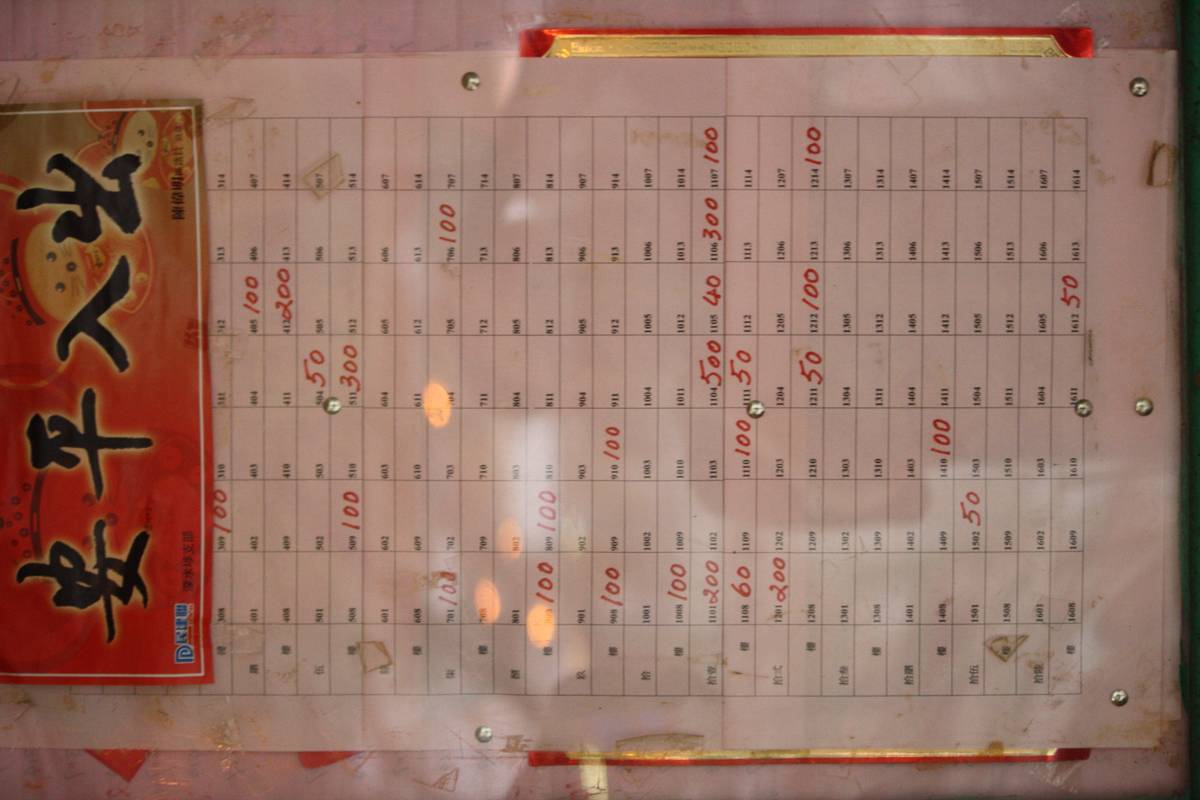 出入平安
陳偉明
民建聯 深水埗支部
樓 308 309 100 310 311 312 313 314
肆 401 402 403 404 405 100 406 407
樓 408 409 410 411 412 200 413 414
伍 501 502 503 504 50 505 506 507
樓 508 509 100 510 511 300 512 513 514
陸 601 602 603 604 605 606 607
樓 608 609 610 611 612 613 614
柒 701 100 702 703 704 705 706 100 707
樓 708 709 710 711 712 713 714
捌 801 802 803 804 805 806 807
樓 808 100 809 100 810 811 812 813 814
玖 901 902 903 904 905 906 907
樓 908 100 909 910 100 911 912 913 914
拾 1001 1002 1003 1004 1005 1006 1007
樓 1008 100 1009 1010 1011 1012 1013 1014
拾壹 1101 200 1102 1103 1104 500 1105 40 1106 300 1107 100
樓 1108 60 1109 1110 100 1111 50 1112 1113 1114
拾弍 1201 200 1202 1203 1204 1205 1206 1207
樓 1208 1209 1210 1211 50 1212 100 1213 1214 100
拾叁 1301 1302 1303 1304 1305 1306 1307
樓 1308 1309 1310 1311 1312 1313 1314
拾肆 1401 1402 1403 1404 1405 1406 1407
樓 1408 1409 1410 100 1411 1412 1413 1414
拾伍 1501 1502 50 1503 1504 1505 1506 1507
樓 1508 1509 1510 1511 1512 1513 1514
拾陸 1601 1602 1603 1604 1605 1606 1607
樓 1608 1609 1610 1611 1612 50 1613 1614